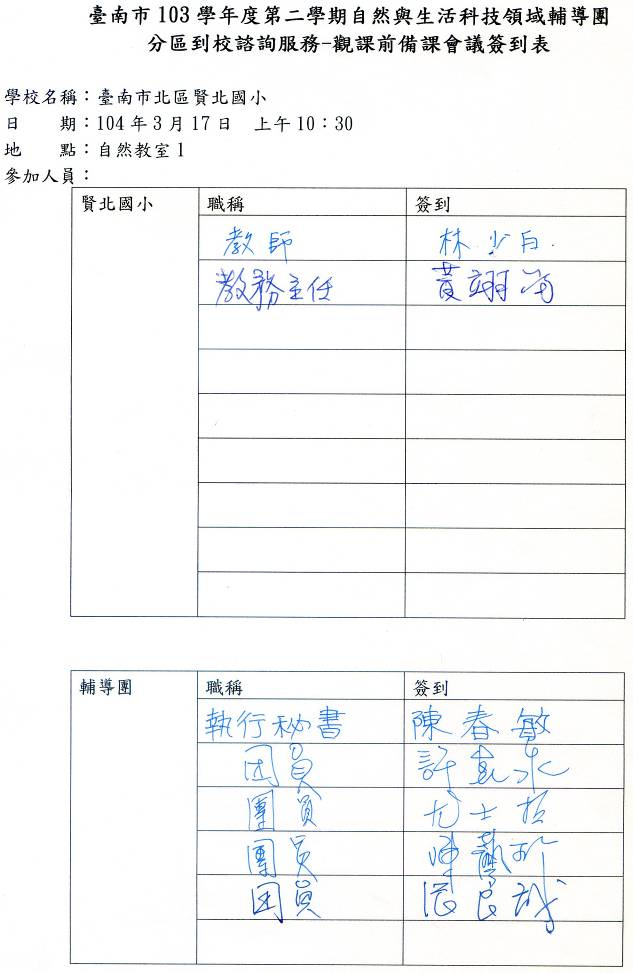 臺南市 103 學年度第二學期自然與生活科技領域輔導團
分區到校諮詢服務-觀課前備課會議簽到表
學校名稱：臺南市北區賢北國小
日　　期：104 年 3 月 17 日　上午 10：30
地　　點：自然教室 1
參加人員：
賢北國小 職稱 簽到
教師 林少白
教務主任 黃翊
輔導團 職稱 簽到
執行秘書 陳春敏
团員 許
團員 尤士哲
團員 陳
团員 良